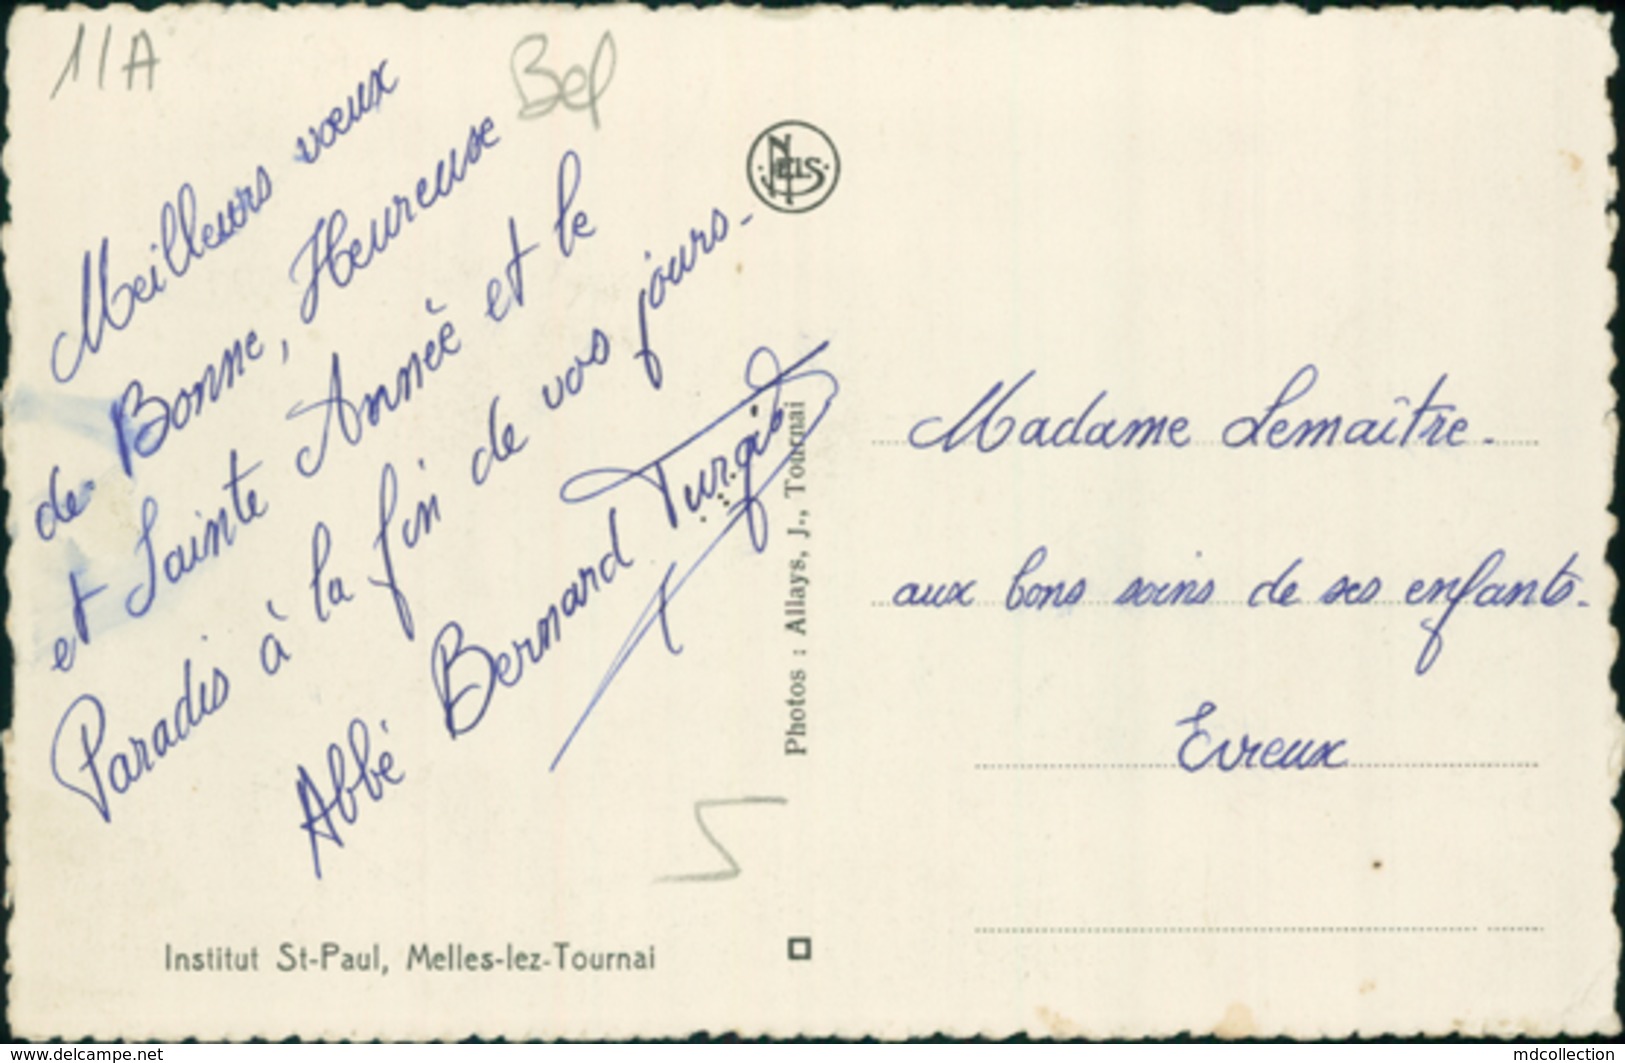 1/A
Bel
Meilleurs vœux
de Bonne, Heureuse
et Sainte Année et le
Paradis à la fin de vos jours.
Abbé Bernard
NELS
Photos : Allays, J., Tournai
Madame Lemaître.
aux bons soins de ses enfants.
Evreux
5
Institut St-Paul, Melles-lez-Tournai
www.delcampe.net
mdcollection